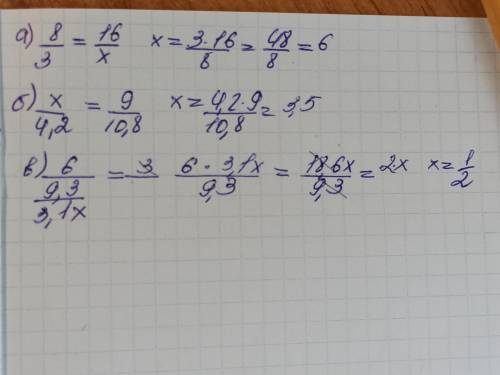 а) 8/3 = 16/x x = 3·16/8 = 48/8 = 6
б) x/4,2 = 9/10,8 x = 4,2·9/10,8 = 3,5
в) 6/(9,3/3,1x) = 3 6·3,1x/9,3 = 18,6x/9,3 = 2x x = 1/2